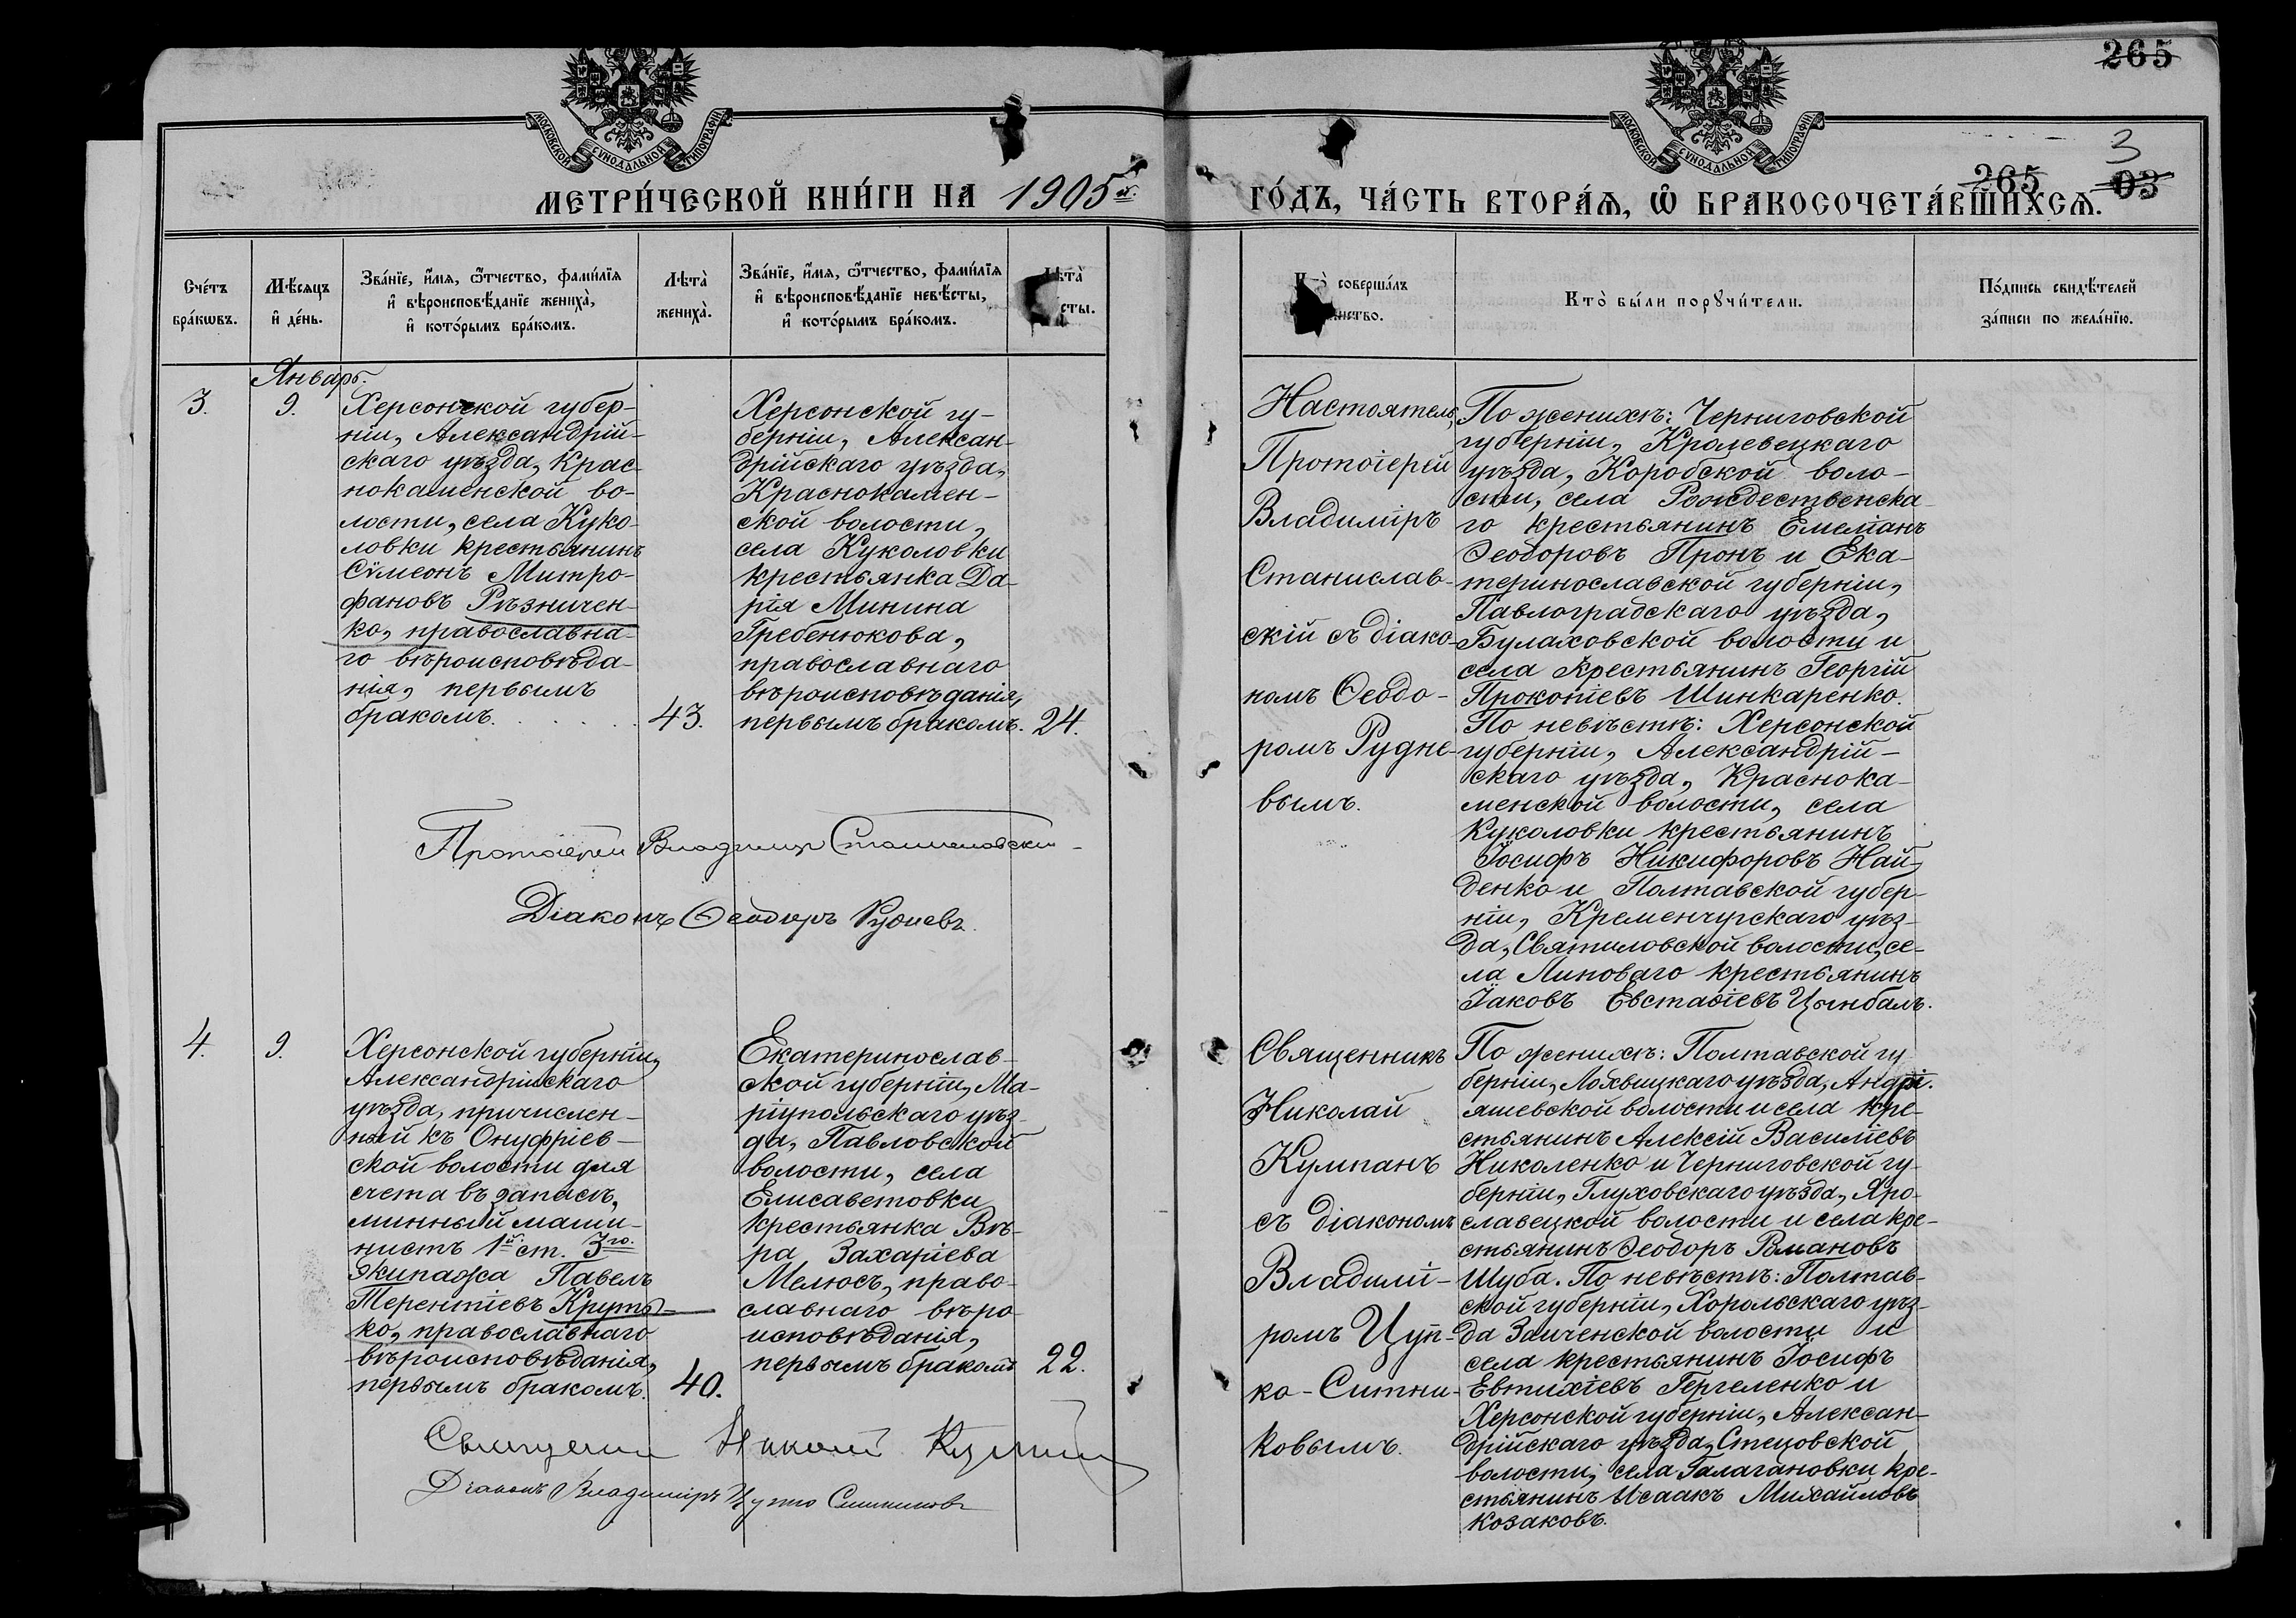 265
МОСКОВСКОЙ СѴНОДАЛЬНОЙ ТИПОГРАФІИ
МОСКОВСКОЙ СѴНОДАЛЬНОЙ ТИПОГРАФІИ
3
265 03
МЕТРИ́ЧЕСКОЙ КНИ́ГИ НА 1905й
ГО́ДЪ, ЧА́СТЬ ВТОРА́Ѧ, Ѡ БРАКОСОЧЕТА́ВШИХСѦ.
Сче́тъ
бра́кѡвъ.
Мѣ́сяцъ
и҆ де́нь.
Зва́нїе, и҆́мя, ѻ҆́тчество, фами́лїя
и҆ вѣроисповѣ́данїе жениха̀,
и҆ кото́рымъ бра́комъ.
Лѣта̀
жениха̀.
Зва́нїе, и҆́мя, ѻ҆́тчество, фами́лїя
и҆ вѣроисповѣ́данїе невѣ́сты,
и҆ кото́рымъ бра́комъ.
Лѣта̀
сты.
соверша́лъ
инство.
Кто̀ бы́ли порꙋчи́тели.
По́дпись свидѣ́телей
за́писи по жела́нїю.
Январь.
3.
9.
Херсонской губер-
ніи, Александрій-
скаго уѣзда, Крас-
нокаменской во-
лости, села Куко-
ловки крестьянинъ
Сѵмеонъ Митро-
фановъ Рѣзничен-
ко, православна-
го вѣроисповѣда-
нія, первымъ
бракомъ. . . . . .
43.
Херсонской гу-
берніи, Алексан-
дрійскаго уѣзда,
Краснокамен-
ской волости,
села Куколовки
крестьянка Да-
рія Минина
Гребенюкова,
православнаго
вѣроисповѣданія,
первымъ бракомъ.
24.
Протоіерей Владимир Станиславский
Діаконъ Ѳеодоръ Рудневъ
Настоятель,
Протоіерей
Владиміръ
Станислав-
скій съ діако-
номъ Ѳеодо-
ромъ Рудне-
вымъ.
По женихѣ: Черниговской
губерніи, Кролевецкаго
уѣзда, Коробской воло-
сти, села Рождественска-
го крестьянинъ Емеліанъ
Ѳеодоровъ Пронъ и Ека-
теринославской губерніи,
Павлоградскаго уѣзда,
Булаховской волости и
села крестьянинъ Георгій
Прокопіевъ Шинкаренко.
По невѣстѣ: Херсонской
губерніи, Александрій-
скаго уѣзда, Краснока-
менской волости, села
Куколовки крестьянинъ
Іосифъ Никифоровъ Най-
денко и Полтавской губер-
ніи, Кременчугскаго уѣз-
да, Святиловской волости, се-
ла Липоваго крестьянинъ
Іаковъ Евстаѳіевъ Цымбалъ.
4.
9.
Херсонской губерніи,
Александрійскаго
уѣзда, причислен-
ный къ Онуфріев-
ской волости для
счета въ запасѣ,
минный маши-
нистъ 1й ст. 3го
экипажа Павелъ
Терентіевъ Крутъ-
ко, православнаго
вѣроисповѣданія,
первымъ бракомъ.
40.
Екатеринослав-
ской губерніи, Ма-
ріупольскаго уѣз-
да, Павловской
волости, села
Елисаветовки
крестьянка Вѣ-
ра Захаріева
Мелюсъ, право-
славнаго вѣро-
исповѣданія,
первымъ бракомъ
22.
Священник Николай Кулпан
Діаконъ Владиміръ Цупко Ситниковъ
Священникъ
Николай
Кулпанъ
съ діакономъ
Владимі-
ромъ Цуп-
ко-Ситни-
ковымъ.
По женихѣ: Полтавской гу
берніи, Лохвицкаго уѣзда, Андрі-
яшевской волости и села кре-
стьянинъ Алексій Василіевъ
Николенко и Черниговской гу-
берніи, Глуховскаго уѣзда, Яро-
славецкой волости и села кре-
стьянинъ Ѳеодоръ Романовъ
Шуба. По невѣстѣ: Полтав-
ской губерніи, Хорольскаго уѣз-
да Заиченской волости и
села крестьянинъ Іосифъ
Евтихіевъ Гергеленко и
Херсонской губерніи, Алексан-
дрійскаго уѣзда, Стецовской
волости, села Галагановки кре-
стьянинъ Исаакъ Михайловъ
Козаковъ.